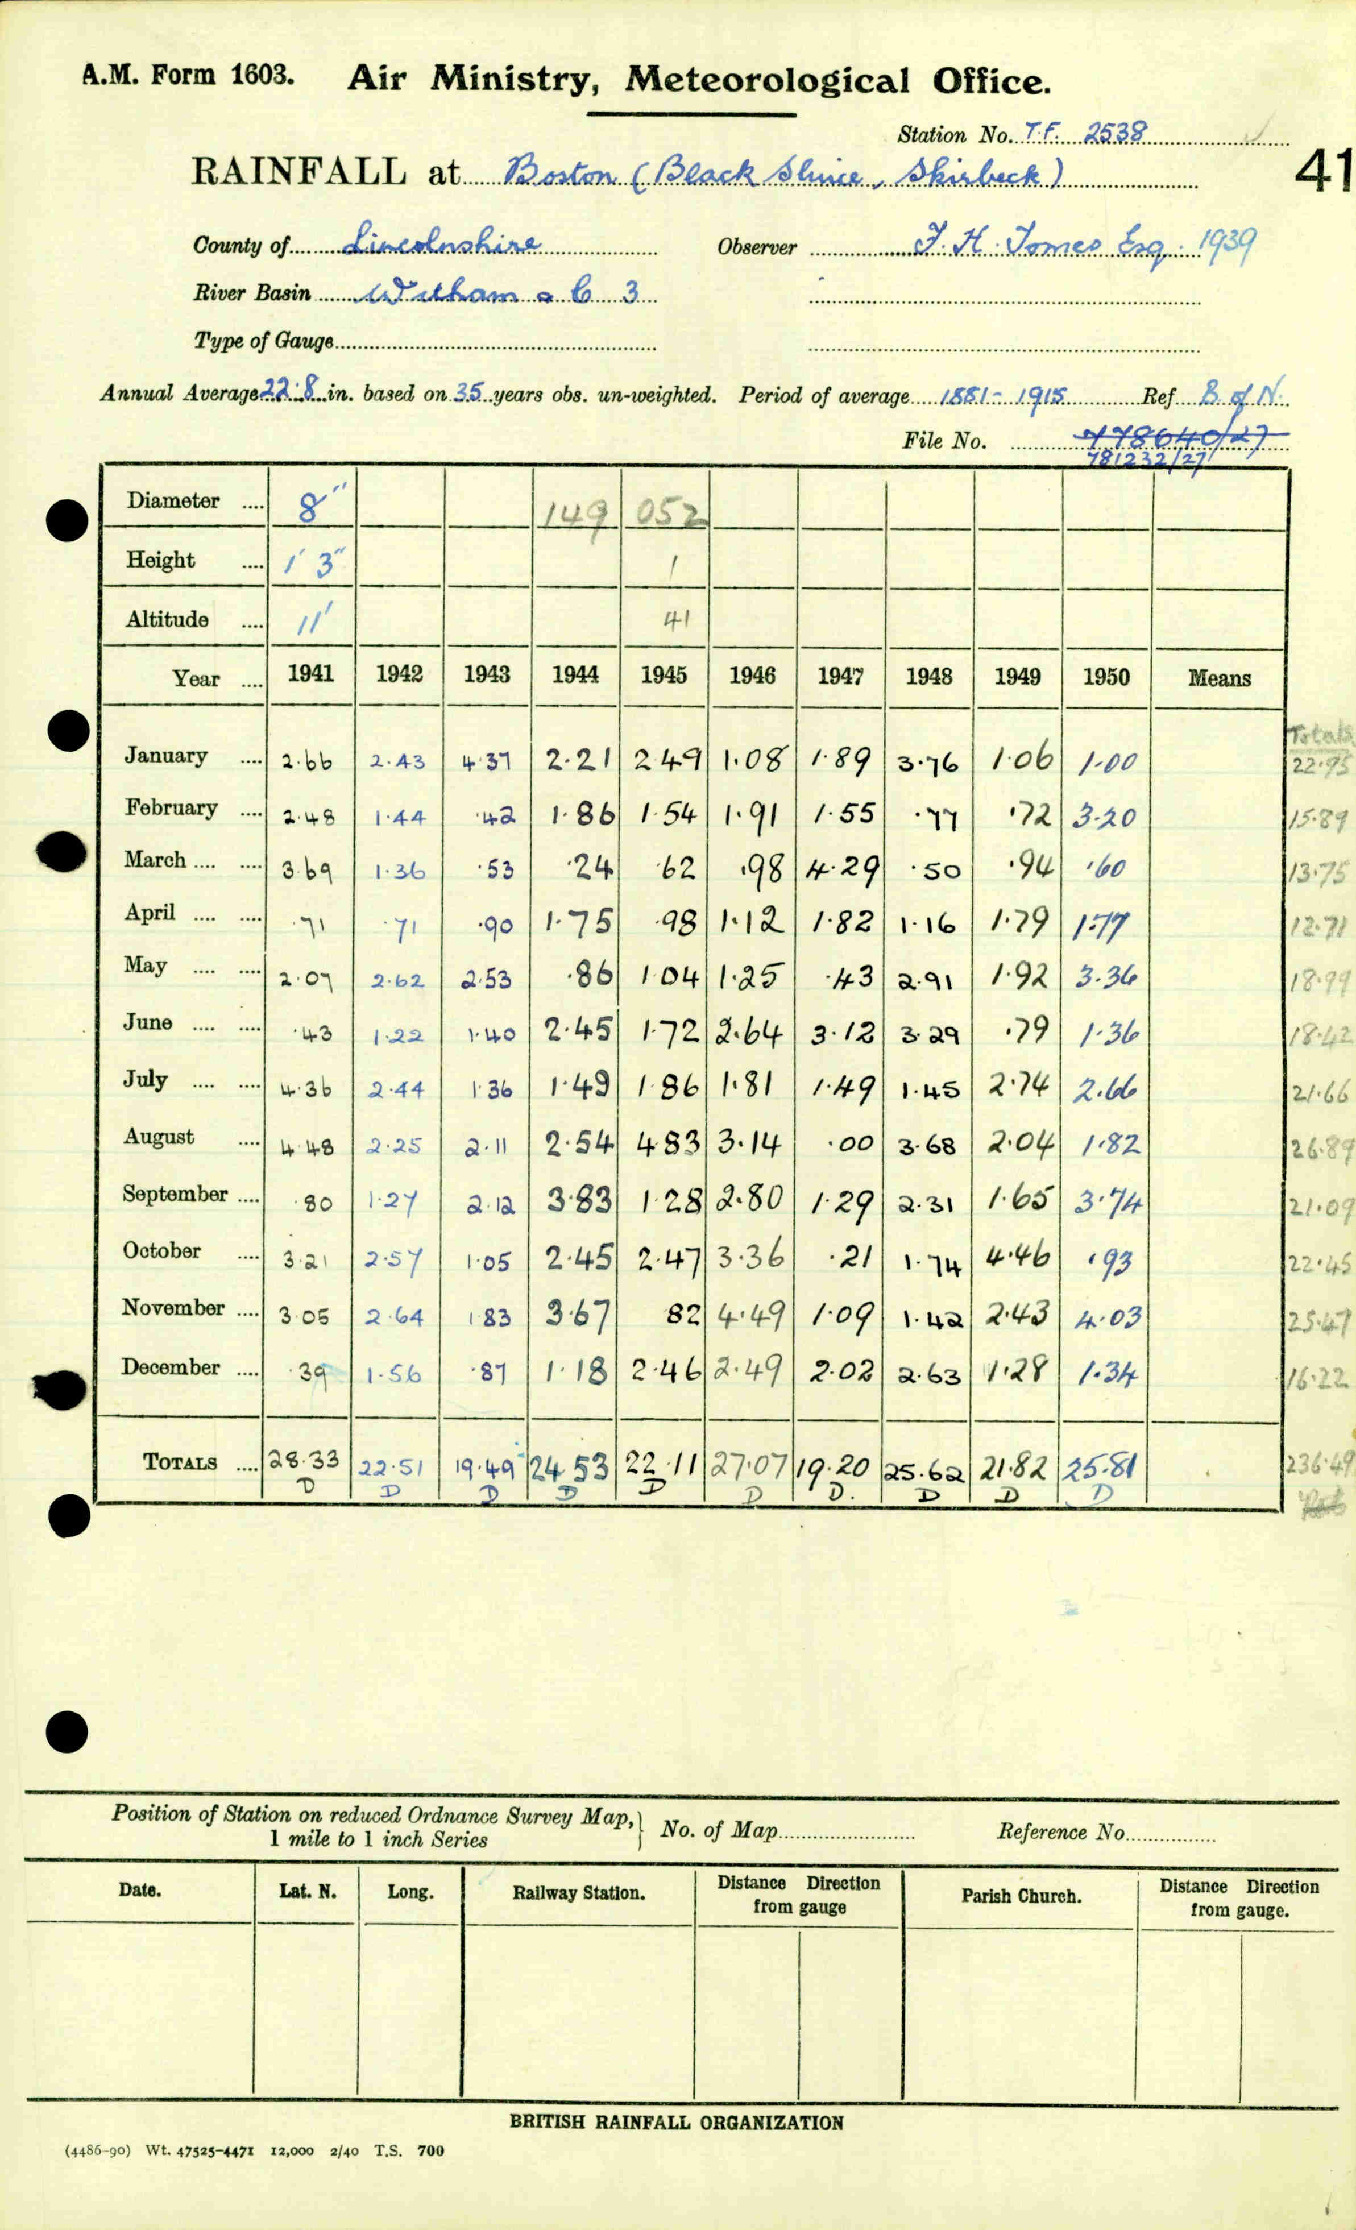 A.M. Form 1603. Air Ministry, Meteorological Office.
Station No. T.F. 2538
41
RAINFALL at Boston (Black Sluice, Skirbeck)
County of Lincolnshire Observer F. H. Tomes Esq. 1939
River Basin Witham & C 3
Type of Gauge
Annual Average 22.8 in. based on 35 years obs. un-weighted. Period of average 1881-1915 Ref B of N.
File No. 778640/27
781232/27
Diameter .... 8" 149 052
Height .... 1' 3" 1
Altitude .... 11' 41
Year .... 1941 1942 1943 1944 1945 1946 1947 1948 1949 1950 Means
Totals
January .... 2.66 2.43 4.37 2.21 2.49 1.08 1.89 3.76 1.06 1.00 22.95
February .... 2.48 1.44 .42 1.86 1.54 1.91 1.55 .77 .72 3.20 15.89
March .... .... 3.69 1.36 .53 .24 .62 .98 4.29 .50 .94 .60 13.75
April .... .... .71 .71 .90 1.75 .98 1.12 1.82 1.16 1.79 1.77 12.71
May .... .... 2.07 2.62 2.53 .86 1.04 1.25 .43 2.91 1.92 3.36 18.99
June .... .... .43 1.22 1.40 2.45 1.72 2.64 3.12 3.29 .79 1.36 18.42
July .... .... 4.36 2.44 1.36 1.49 1.86 1.81 1.49 1.45 2.74 2.66 21.66
August .... 4.48 2.25 2.11 2.54 4.83 3.14 .00 3.68 2.04 1.82 26.89
September .... .80 1.27 2.12 3.83 1.28 2.80 1.29 2.31 1.65 3.74 21.09
October .... 3.21 2.57 1.05 2.45 2.47 3.36 .21 1.74 4.46 .93 22.45
November .... 3.05 2.64 1.83 3.67 82 4.49 1.09 1.42 2.43 4.03 25.47
December .... .39 1.56 .87 1.18 2.46 2.49 2.02 2.63 1.28 1.34 16.22
TOTALS .... 28.33 22.51 19.49 24.53 22.11 27.07 19.20 25.62 21.82 25.81 236.49
D D D D D D D. D D D
Position of Station on reduced Ordnance Survey Map, } No. of Map Reference No.
1 mile to 1 inch Series
Date. Lat. N. Long. Railway Station. Distance Direction from gauge Parish Church. Distance Direction from gauge.
BRITISH RAINFALL ORGANIZATION
(4486-90) Wt. 47525-4471 12,000 2/40 T.S. 700